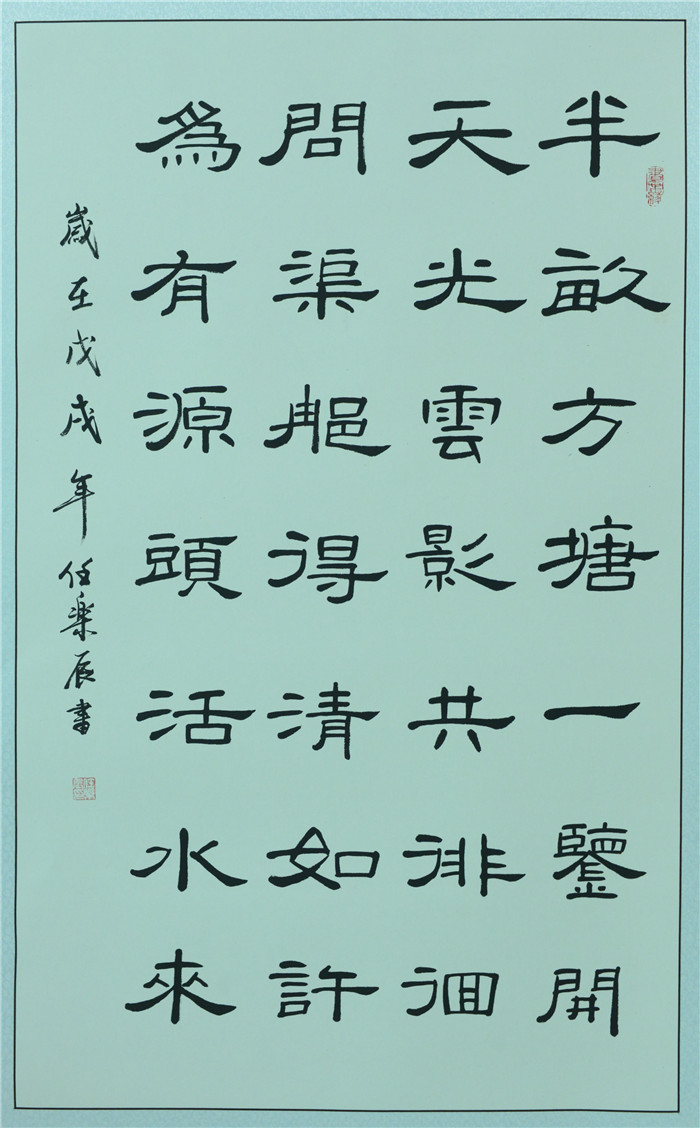 半畝方塘一鑒開
天光雲影共徘徊
問渠那得清如許
爲有源頭活水來
歲在戊戌年任樂辰書